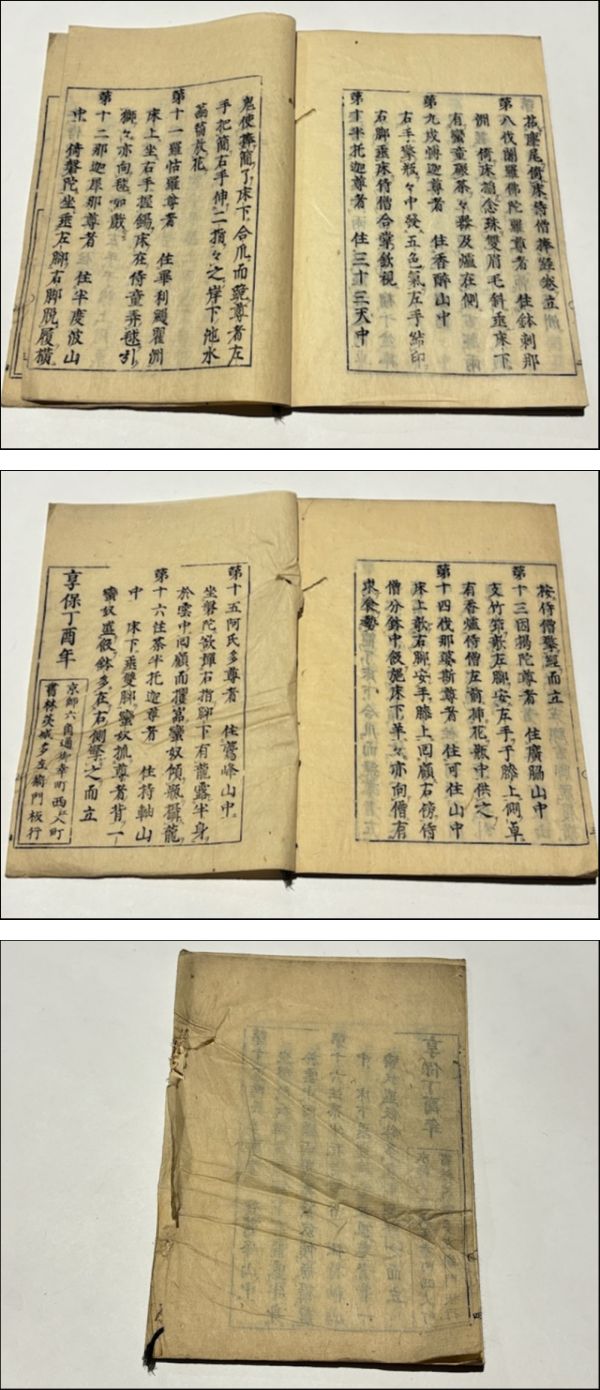 花塵尾倚床侍僧捧經巻立
第八伐闍羅佛陀羅尊者　住鉢刺那
洲　倚床搯念珠雙眉毛斜垂床下
有蠻童碾茶々器及爐在側
第九戍博迦尊者　住香醉山中
右手擎瓶々中發五色氣左手結印
右脚垂床侍僧合掌欽視
第十半托迦尊者　住三十三天中
鬼使捧簡了床下合爪而覲尊者左
手把簡右手伸二指々之岸下池水
菡萏放花
第十一羅怙羅尊者　住畢利颺瞿洲
床上坐右手握錫床在侍童弄毬引
獅々亦向毬如戲
第十二那迦犀那尊者　住半度波山
中　倚磐陀坐垂左脚右脚脱履横
按侍僧擎經而立
第十三因揭陀尊者　住廣脇山中
支竹節欹左脚安左手于膝上側卓
有香爐侍僧左前挿花瓶中供之
第十四伐那婆斯尊者　住可住山中
床上欹右脚安手膝上回顧右傍侍
僧分鉢中飯施床下羊々亦向僧有
求食勢
第十五阿氏多尊者　住鷲峰山中
坐磐陀欹擇右指脚下有龍露半身
於雲中回顧而擢嵩蠻奴傾瓶攝龍
第十六注荼半托迦尊者　住持軸山
中　床下垂雙脚蠻奴抓尊者背一
蠻奴盛飯鉢多在右側擎之而立
享保丁酉年
京師六角通御幸町西江入町
書林茨城多左衛門板行